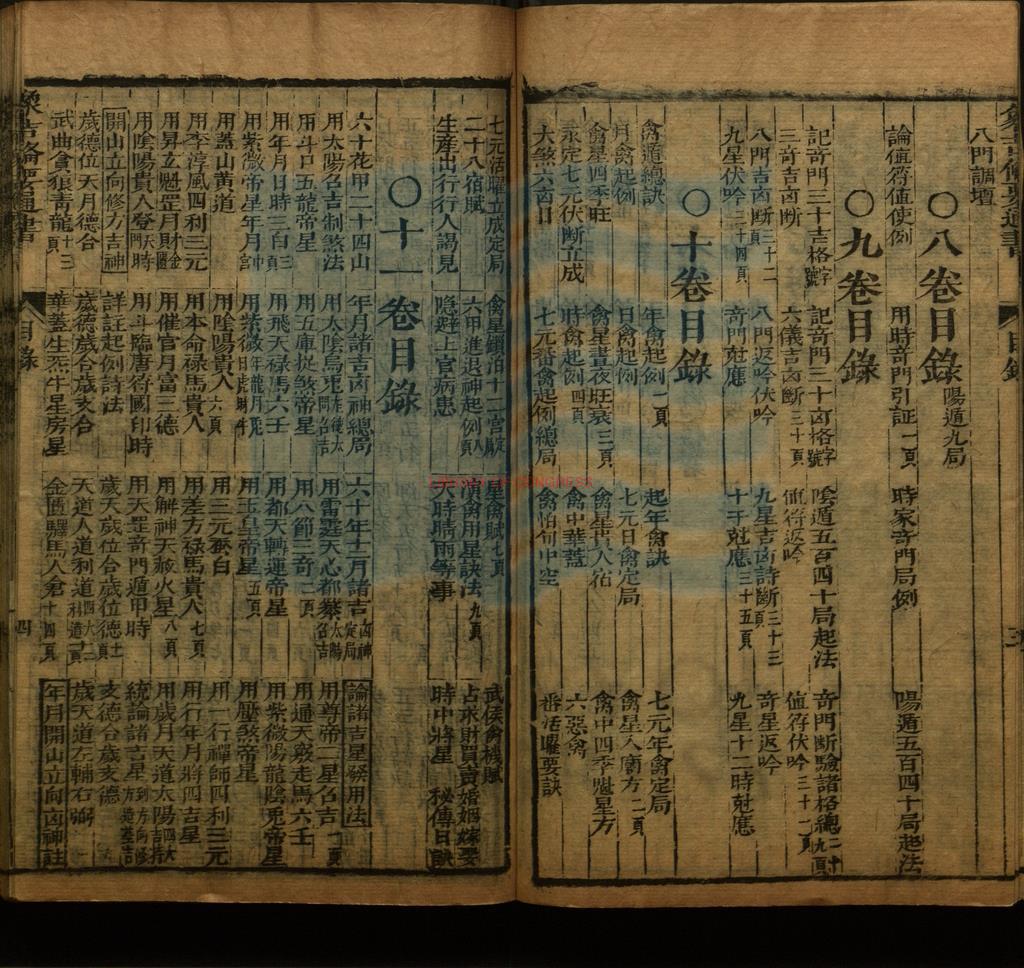 八門調壇
○八卷目錄
陽遁九局
論值符值使例
用時竒門引証 一頁
時家竒門局例
陽遁五百四十局起法
○九卷目錄
記竒門三十吉格
記竒門三十凶格
陰遁五百四十局起法
竒門斷驗諸格總
三竒吉凶斷
六儀吉凶斷 三十頁
值符返吟
值符伏吟 三十一頁
八門吉凶斷 三十二
八門返吟伏吟
九星吉凶詩斷 三十三
竒星返吟
九星伏吟 三十四頁
竒門尅應
十干尅應 三十五頁
九星十二時尅應
○十卷目錄
禽遁總訣
年禽起例 一頁
起年禽訣
七元年禽定局
月禽起例
日禽起例
七元日禽定局
禽星入廟方 二頁
禽星四季旺
禽星晝夜旺衰 三頁
禽中四季魁星方
時禽起例 四頁
禽中華蓋
六惡禽
大煞六凶日
七元番禽起例總局
番活曜要訣
七元活曜立成定局
星禽賦 七頁
武侯禽機賦
二十八宿賦
六甲進退神起例
演禽用星訣法 九頁
占求財買賣婚姻嫁娶
生產出行行人謁見
隱避上官病患
天時晴雨等事
時中將星
秘傳日訣
○十一卷目錄
六十花甲二十四山
年月諸吉凶神總局
六十年十二月諸吉凶神定局
論諸吉星發用法
用太陽召吉制煞法
用尊帝二星召吉 一頁
用斗口五龍帝星
用五庫捉煞帝星
用八節三竒 二頁
用通天竅走馬六壬
用年月日時三白 三頁
用飛天祿馬六壬
用都天轉運帝星
用紫微陽龍陰兎帝星
用紫微帝星年月
用玉皇帝星 五頁
用壓煞帝星
用蓋山黃道
用陰陽貴人 六頁
用三元紫白
用一行禪師四利三元
用李淳風四利三元
用本命祿馬貴人
用差方祿馬貴人 七頁
用行年月將四吉星
用昇玄魁罡月財
用催官月富三德
用解神天赦火星 八頁
用歲月天道太陽
用陰陽貴人登天門時
用斗臨唐符國印時
用天罡竒門遁甲時
統論諸吉星
開山立向修方吉神
詳註起例詩法
歲天歲位合歲位德
支德合歲支德
歲德位天月德合
歲德歲合歲支合
天道人道利道
歲天道左輔右弼
武曲貪狼青龍 十三頁
華蓋生炁牛星房星
金匱驛馬人倉 十四頁
年月開山立向凶神註
目錄
四